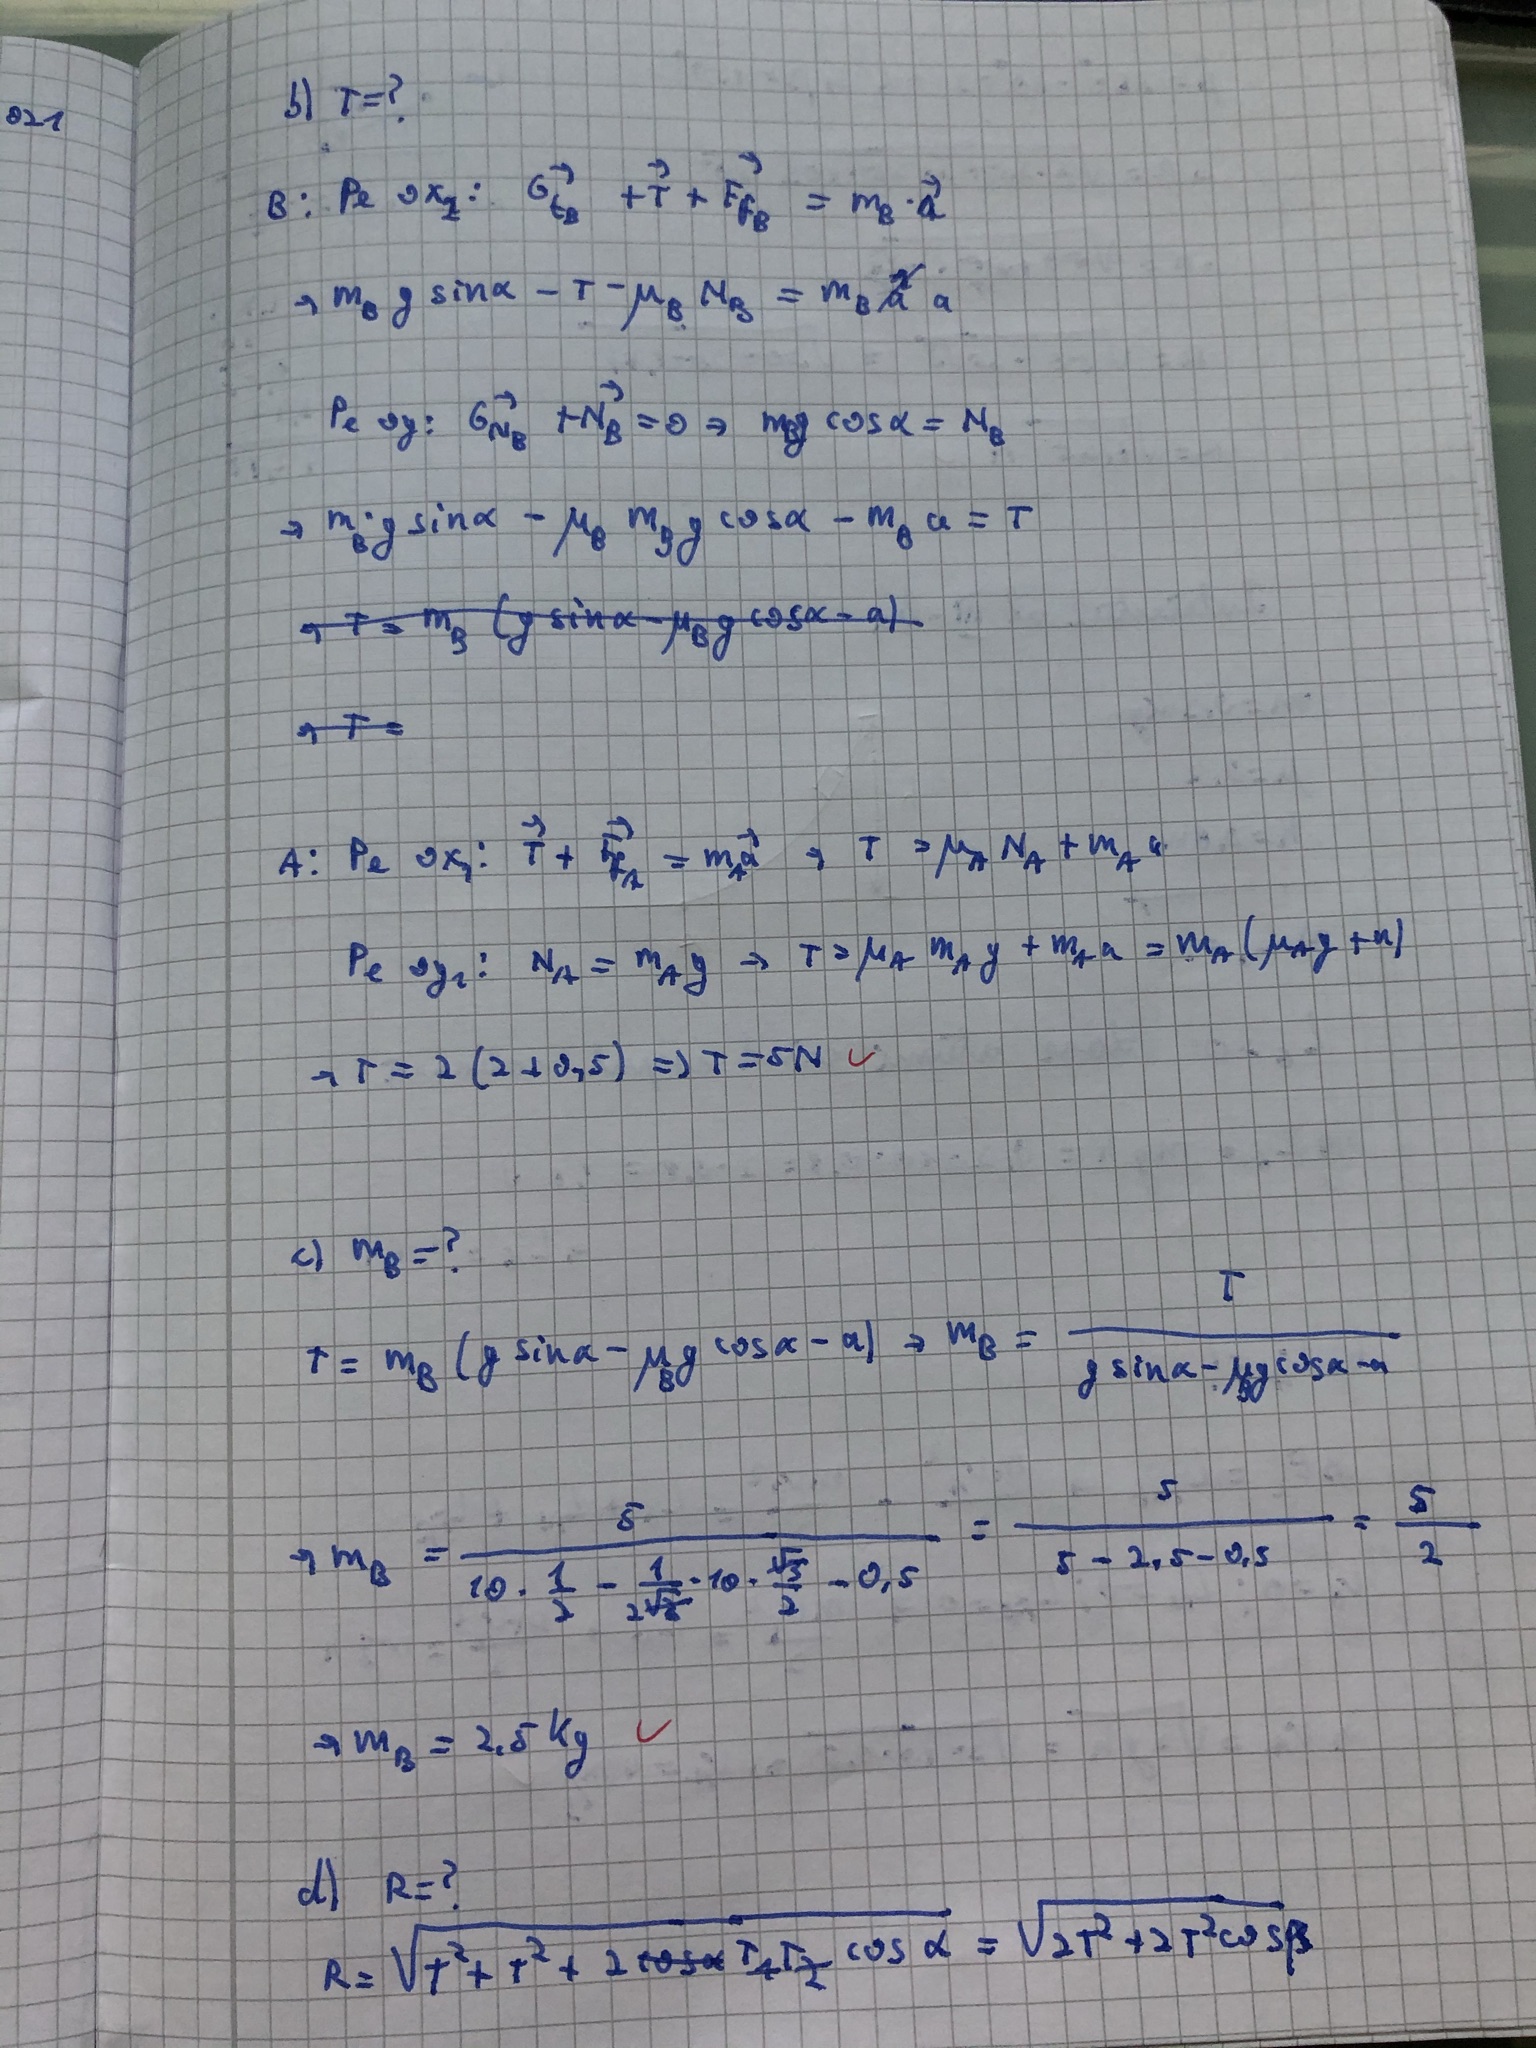 021
b) T=?
B: Pe ox₂: G⃗tB + T⃗ + F⃗fB = mB · a⃗
→ mB g sinα − T − μB NB = mB a
Pe oy: G⃗NB + N⃗B = 0 → mBg cosα = NB
→ mB·g sinα − μB mBg cosα − mB a = T
→ T = mB (g sinα − μBg cosα − a)
→ T =
A: Pe ox₁: T⃗ + F⃗fA = mAa⃗ → T = μA NA + mA a
Pe oy₁: NA = mA g → T = μA mA g + mA a = mA (μAg + a)
→ T = 2 (2+0,5) => T = 5N ✓
c) mB = ?
T = mB (g sinα − μBg cosα − a) → mB = T / (g sinα − μBg cosα − a)
→ mB = 5 / (10 · 1/2 − 1/(2√3) · 10 · √3/2 − 0,5) = 5 / (5 − 2,5 − 0,5) = 5/2
→ mB = 2,5 Kg ✓
d) R = ?
R = √(T² + T² + 2 cosα T₁T₂ cos α) = √(2T² + 2T² cosβ)